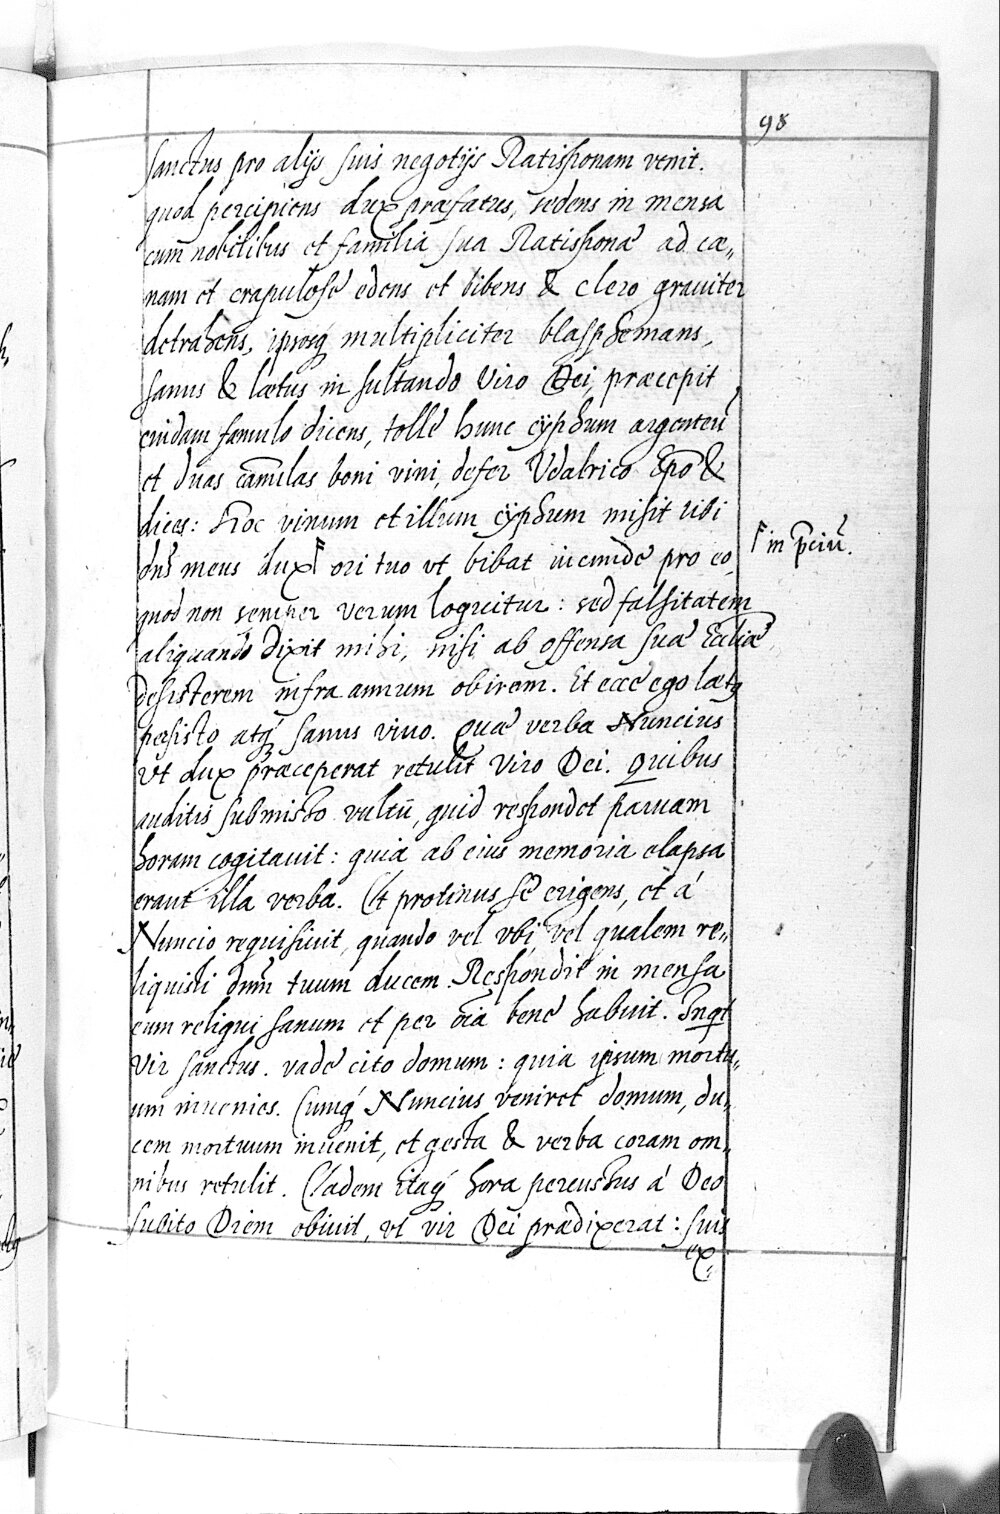 98
sanctus pro alijs suis negotijs Ratisponam venit.
quod percipiens dux præfatus, sedens in mensa
cum nobilibus et familia sua Ratisponæ ad cæ„
nam et crapulosé edens et bibens & clero grauiter
detrahens, ipsosq́ multipliciter blasphemans,
sanus & lætus in sultando Viro Dei, præcepit
cuidam famulo dicens, tolle hunc cyphum argenteū
et duas cannulas boni vini, defer Vdalrico Ep̄o &
dices: Hoc vinum et illum cyphum misit tibi
dn̄s meus dux ori tuo vt bibat iucunde pro eo,
in p̄ciū.
quod non semper verum loquitur: sed falsitatem
aliquando dixit mihi, nisi ab offensa suæ Eccliæ
desisterem infra annum obirem. Et ecce ego lætq
persisto atq́ sanus viuo. Quæ verba Nuncius
vt dux præceperat retulit Viro Dei. Quibus
auditis submisso vultū, quid respondet paruam
horam cogitauit: quia ab eius memoria elapsa
erant illa verba. Et protinus se erigens, et á
Nuncio requisiuit, quando vel vbi, vel qualem re„
liquisti dn̄m tuum ducem. Respondit in mensa
eum reliqui sanum et per oīa bene habuit. Inqt
Vir sanctus. vade cito domum: quia ipsum mortu„
um inuenies. Cumq́ Nuncius veniret domum, du„
cem mortuum inuenit, et gesta & verba coram om„
nibus retulit. Eadem itaq́ hora percussus á Deo
subito Diem obiuit, vt vir Dei prædixerat: suis
ex„